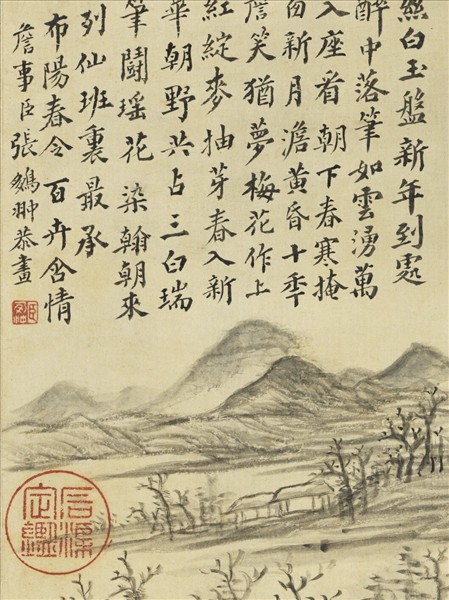 絲白玉盤新年到處
醉中落筆如雲湧萬
入座看朝下春寒掩
回新月澹黃昏十年
簷笑猶夢梅花作上
紅綻麥抽芽春入新
華朝野共占三白瑞
筆鬪瑤花 染翰朝來
列仙班裏最承
布陽春令百卉含情
詹事臣張鵬翀恭畫
石渠定鑑